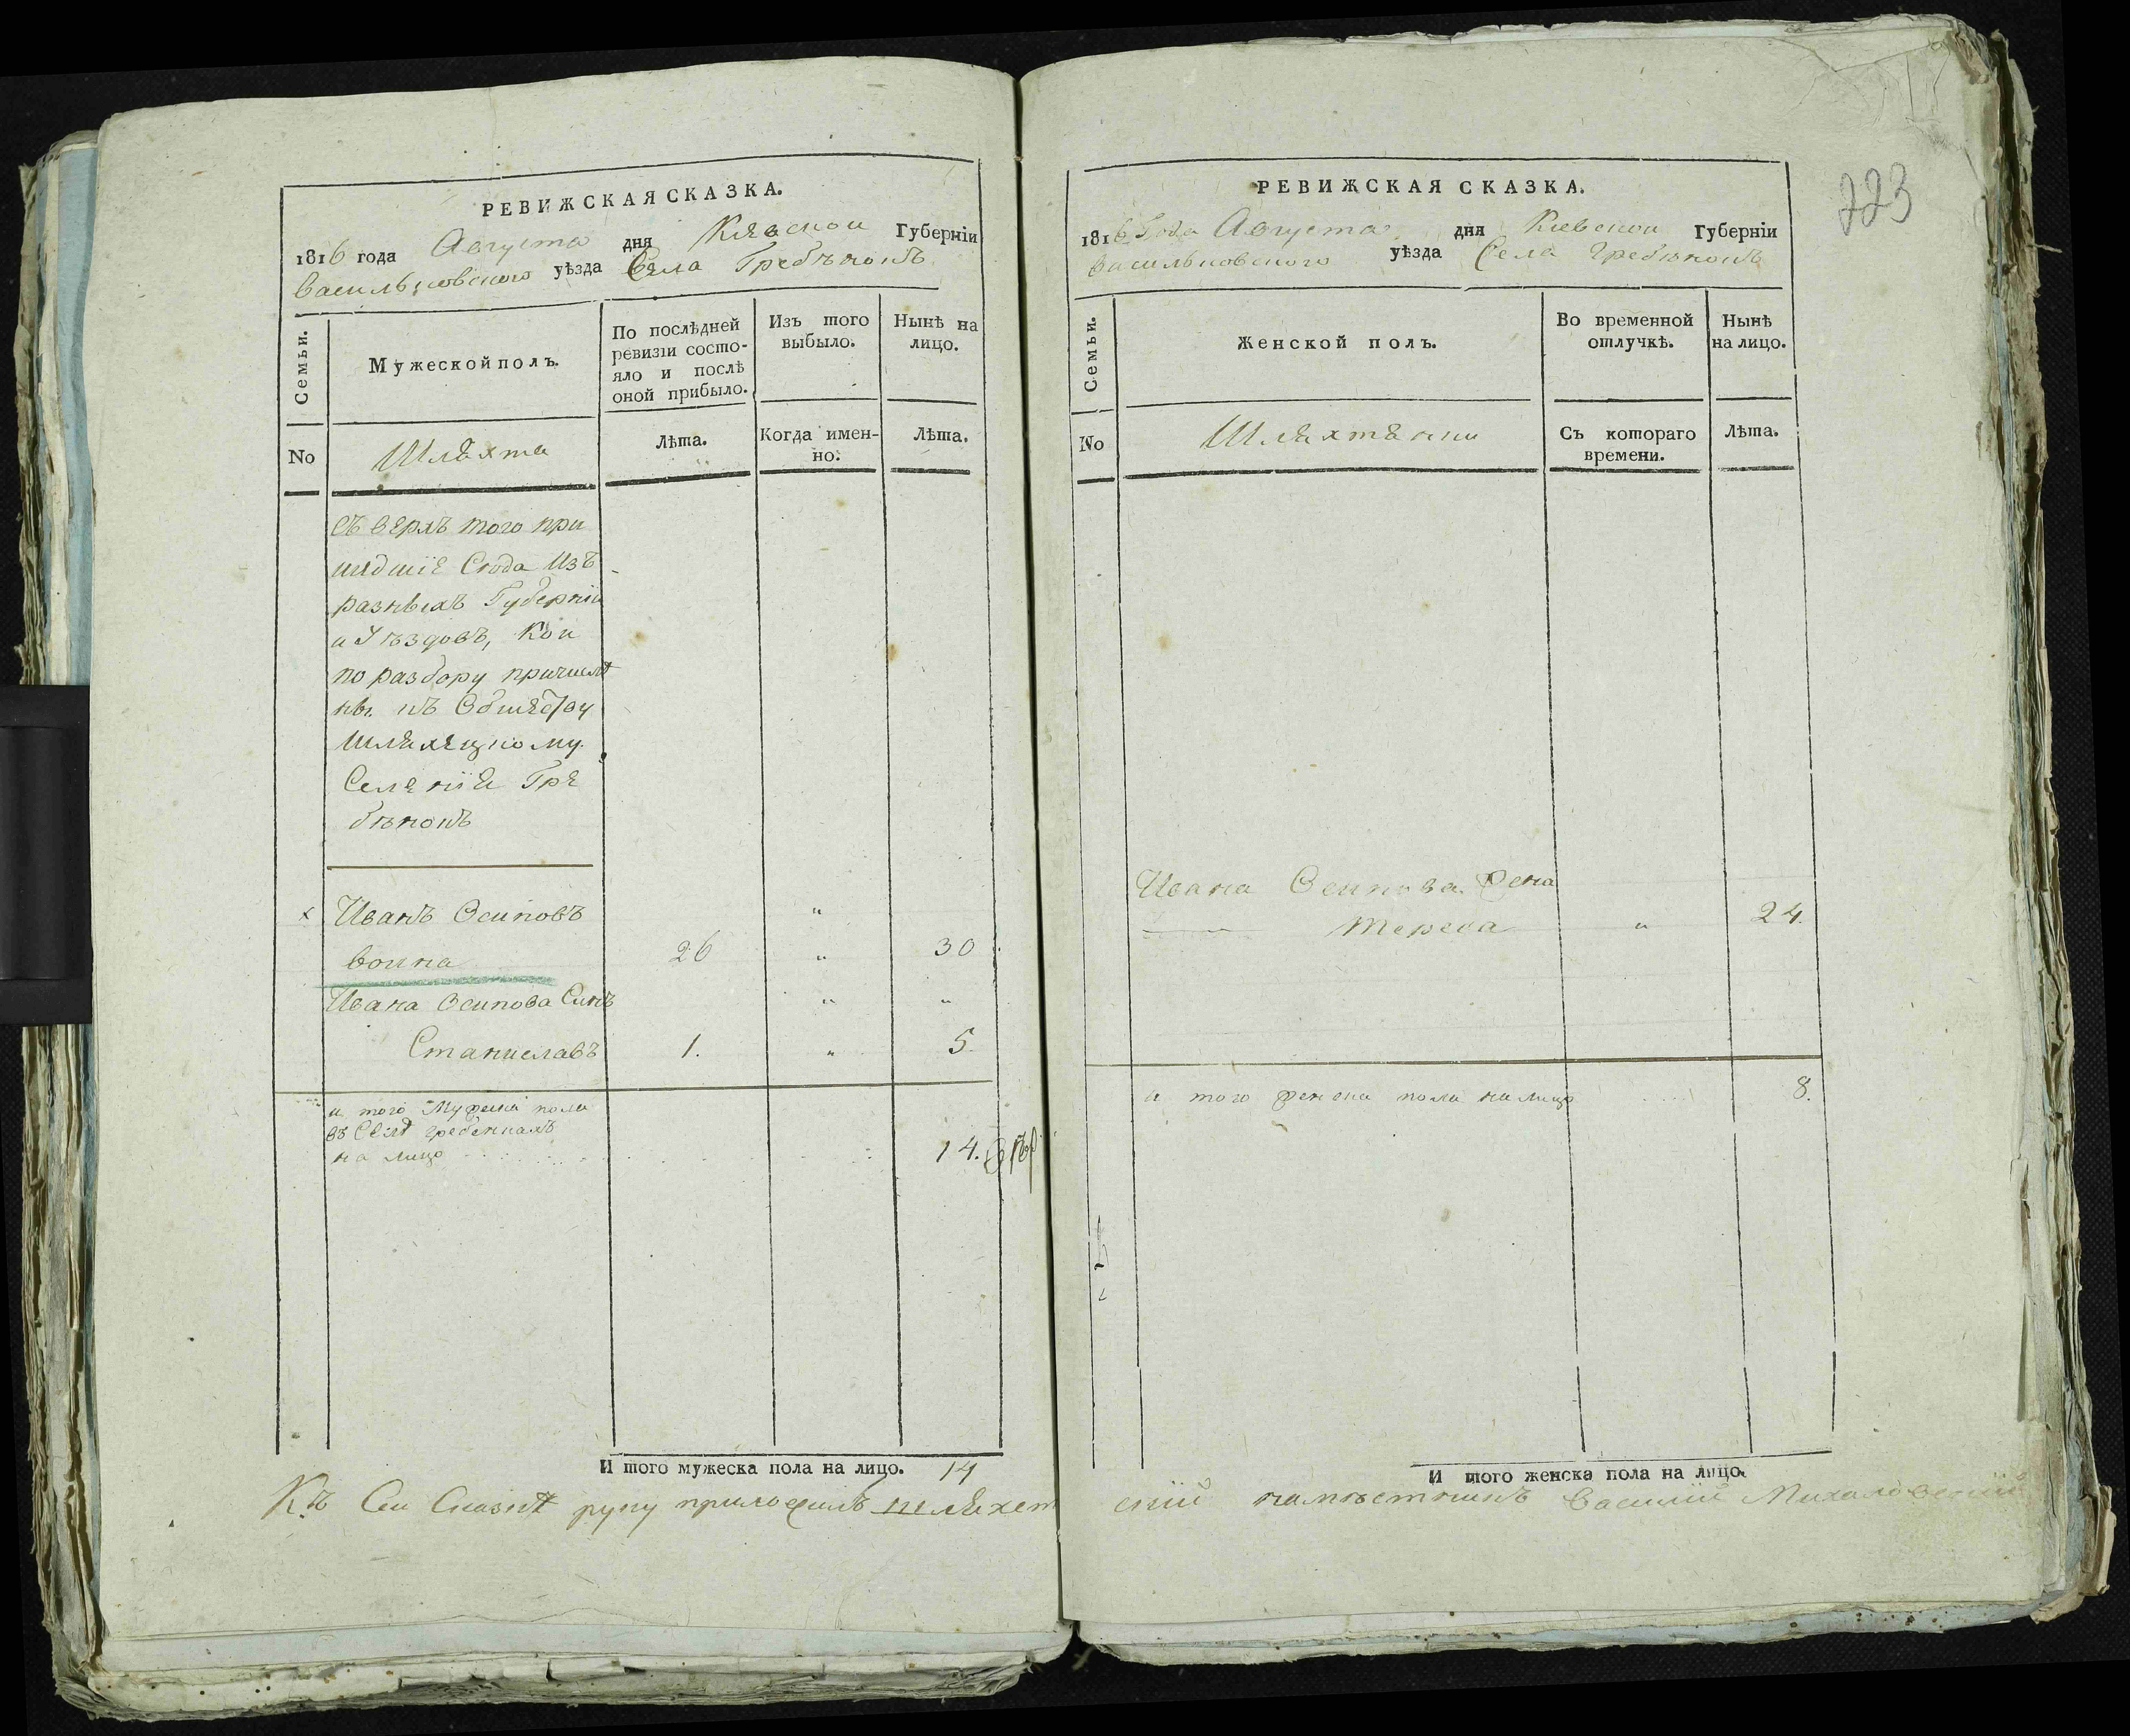 РЕВИЖСКАЯ СКАЗКА.
1816 года Августа дня Киевской Губерніи
Васильковского уѣзда Села Гребѣнокъ
Семьи.
Мужеской полъ.
По послѣдней ревизіи состояло и послѣ оной прибыло.
Изъ того выбыло.
Нынѣ на лицо.
No
Шляхта
Лѣта.
Когда имен-
но:
Лѣта.
Съверхъ того при
шедшіе Сюда Изъ
разныхъ Губерніи
и Уѣздовъ, Кои
по разбору причисле
ны къ Обществу
Шляхецкому
Селенія Гре
бѣнокъ
х Иванъ Осиповъ "
воина 26 " 30
Ивана Осипова Синъ " "
Станиславъ 1. " 5.
и того Мужеска пола
въ Селѣ Гребенкахъ
на лицо 14.
И того мужеска пола на лицо. 14
Къ Сеи Сказкѣ руку приложилъ шляхет
223
РЕВИЖСКАЯ СКАЗКА.
1816 Года Августа дня Киевской Губерніи
Васильковского уѣзда Села Гребѣнокъ
Семьи.
Женской полъ.
Во временной отлучкѣ.
Нынѣ на лицо.
No
Шляхтянки
Съ котораго
времени.
Лѣта.
Ивана Осипова Жена
Тереса " 24.
и того женска пола налицо 8.
И того женска пола на лицо.
скій намѣстникъ Василій Михаловскій